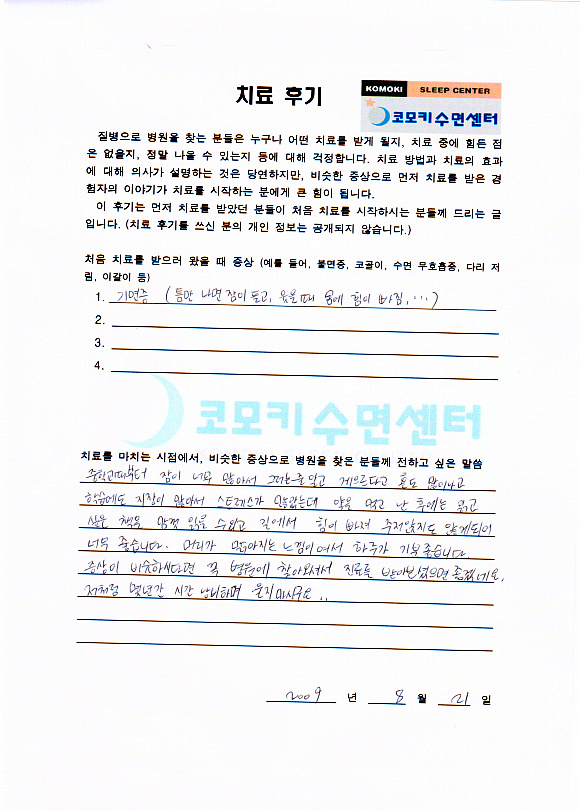 치료 후기
KOMOKI SLEEP CENTER
코모키수면센터
질병으로 병원을 찾는 분들은 누구나 어떤 치료를 받게 될지, 치료 중에 힘든 점
은 없을지, 정말 나을 수 있는지 등에 대해 걱정합니다. 치료 방법과 치료의 효과
에 대해 의사가 설명하는 것은 당연하지만, 비슷한 증상으로 먼저 치료를 받은 경
험자의 이야기가 치료를 시작하는 분에게 큰 힘이 됩니다.
이 후기는 먼저 치료를 받았던 분들이 처음 치료를 시작하시는 분들께 드리는 글
입니다. (치료 후기를 쓰신 분의 개인 정보는 공개되지 않습니다.)
처음 치료를 받으러 왔을 때 증상 (예를 들어, 불면증, 코골이, 수면 무호흡증, 다리 저
림, 이갈이 등)
1. 기면증 (틈만 나면 잠이 들고, 웃을때 몸에 힘이 빠짐, ...)
2.
3.
4.
코모키수면센터
치료를 마치는 시점에서, 비슷한 증상으로 병원을 찾은 분들께 전하고 싶은 말씀
중학교때부터 잠이 너무 많아서 그러는줄알고 게으르다고 혼도 많이나고
학습에도 지장이 많아서 스트레스가 많았는데 약을 먹고 난 후에는 읽고
싶은 책을 맘껏 읽을 수있고 길에서 힘이 빠져 주저앉지도 않게되어
너무 좋습니다. 머리가 맑아지는 느낌이어서 하루가 기분좋습니다.
증상이 비슷하시다면 꼭 병원에 찾아오셔서 진료를 받아보셨으면 좋겠네요.
저처럼 몇년간 시간 낭비하며 울지마시구요..
2009 년 8 월 21 일